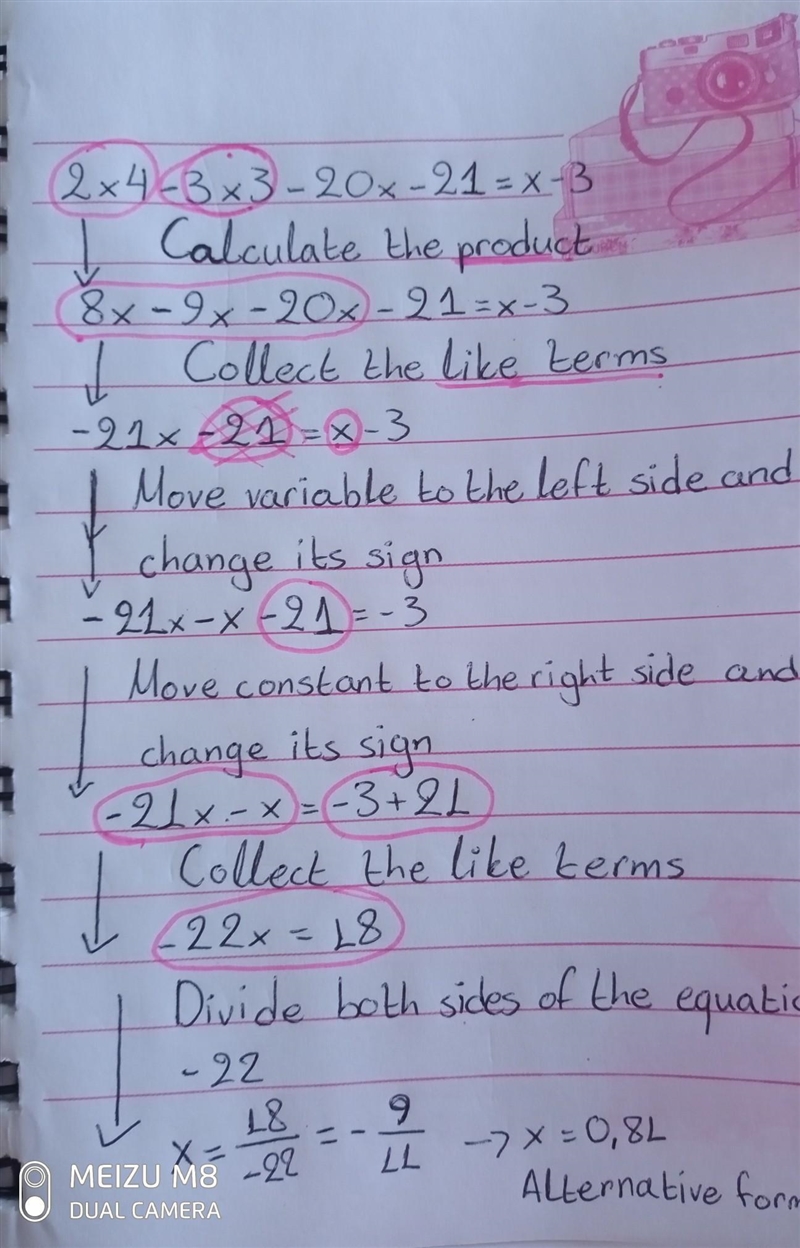 2x4-3x3-20x-21=x-3
Calculate the product
8x-9x-20x-21=x-3
Collect the like terms
-21x-21=x-3
Move variable to the left side and
change its sign
-21x-x-21=-3
Move constant to the right side and
change its sign
-21x-x=-3+21
Collect the like terms
-22x=18
Divide both sides of the equatio
-22
x=18/-22=-9/11 → x=0,81
Alternative form
MEIZU M8
DUAL CAMERA